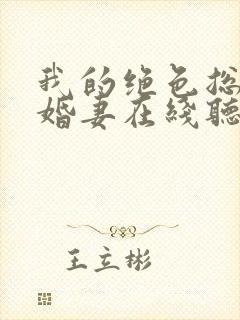 我的绝色总
婚妻在线听
王立彬